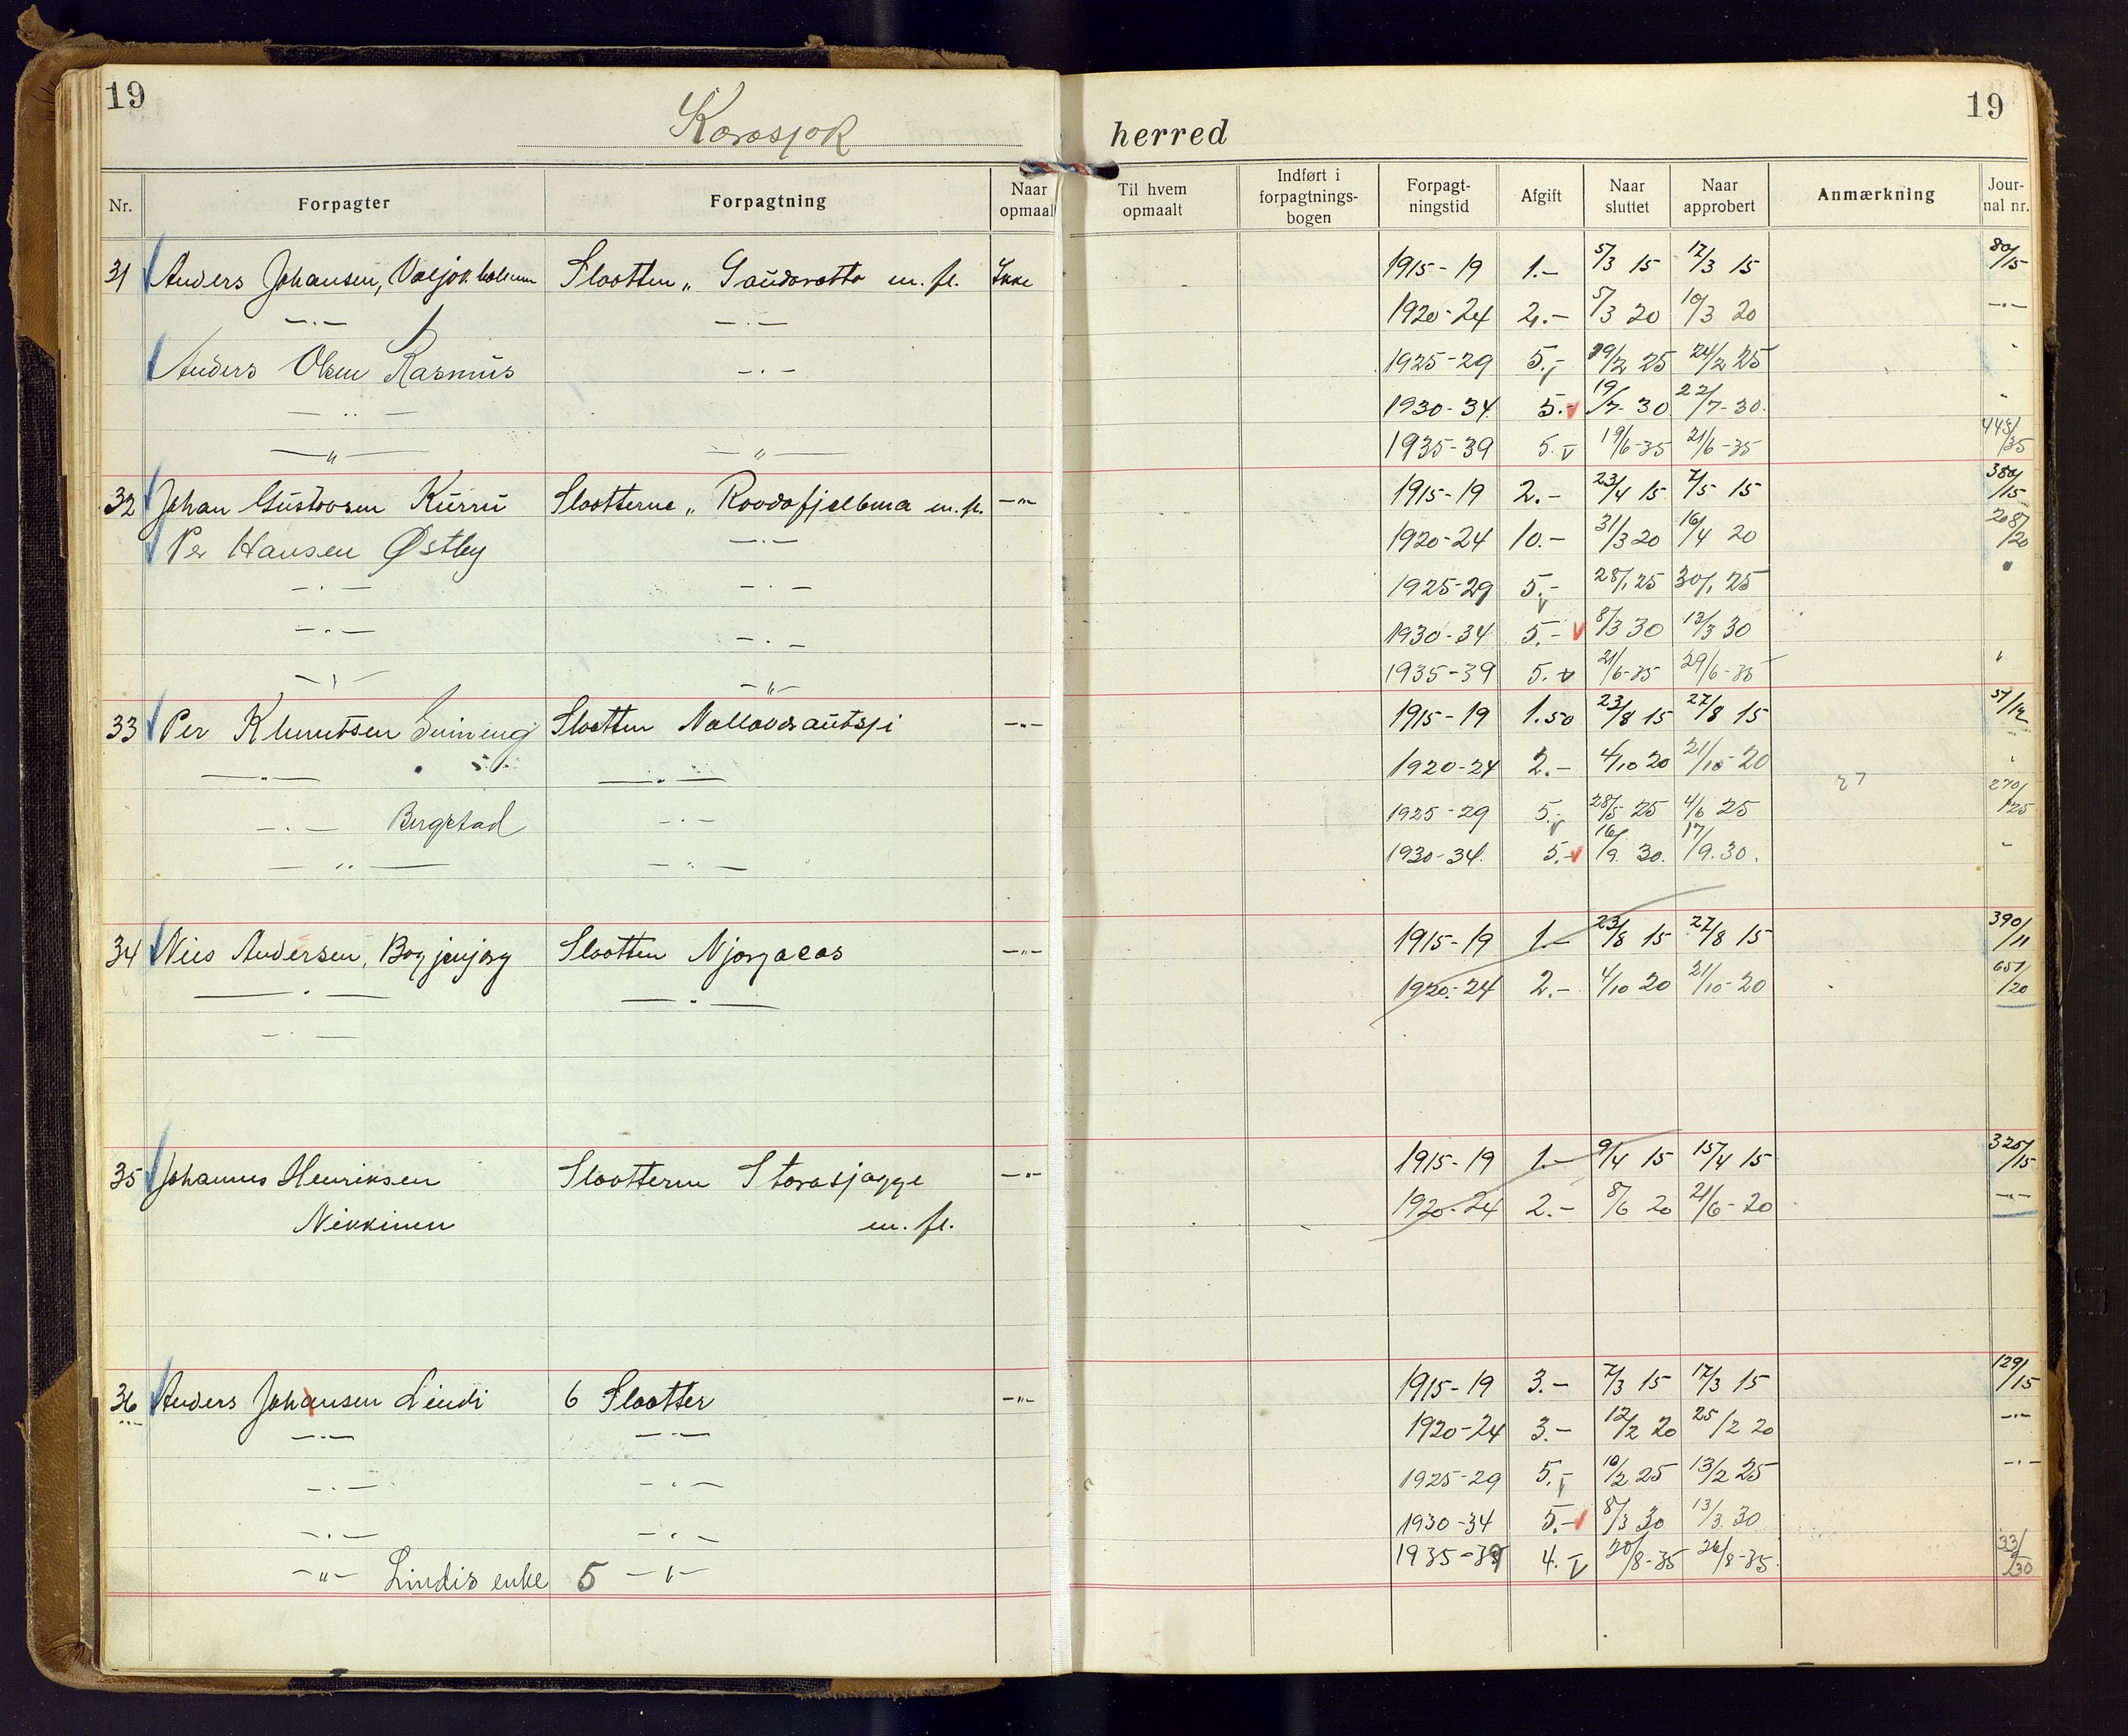 19
19
Karasjok herred
Nr. Forpagter Forpagtning Naar opmaalt Til hvem opmaalt Indført i forpagtnings-bogen Forpagt-ningstid Afgift Naar sluttet Naar approbert Anmærkning Jour-nal nr.
31 Anders Johansen, Valjok Slaatten „ m. fl. Ikke 1915-19 1.- 5/3 15 12/3 15 80/15
—„— —„— 1920-24 2.- 5/3 20 10/3 20 —„—
Anders Olsen Rasmus —„— 1925-29 5.- 19/2 25 24/2 25 "
—„— 1930-34 5.- 19/7-30 22/7-30. "
—„— —„— 1935-39 5. 19/6-35 21/6-35 445/35
32 Johan Gustavsen Kurru Slaatterne „ m. fl. —„— 1915-19 2.- 23/4 15 7/5 15 380/15
Per Hansen Østby —„— 1920-24 10.- 31/3 20 16/4 20 208/20
—„— —„— 1925-29 5.- 28/1 25 30/1 25 "
—„— —„— 1930-34 5.- 8/3 30 13/3 30
—„— —„— 1935-39 5. 21/6-35 29/6-35 "
33 Per Klemetsen Slaatten Nallavdsautsji —„— 1915-19 1.50 23/8 15 27/8 15
—„— —„— 1920-24 2.- 4/10 20 21/10-20 "
—„— Bergstad —„— 1925-29 5.- 28/5 25 4/6 25 27 270/25
—„— —„— 1930-34. 5.- 16/9. 30. 17/9. 30. "
34 Niels Andersen, Slaatten Njargaeas —„— 1915-19 1.- 23/8 15 27/8 15 390/11
—„— —„— 1920-24 2.- 4/10 20 21/10-20 651/20
—„—
35 Johannes Henriksen Slaatterne Starasjagge —„— 1915-19 1.- 9/4 15 15/4 15 325/15
Nikkinen m. fl. 1920-24 2.- 8/6 20 21/6-20 —„—
36 Anders Johansen Lindi 6 Slaatter —„— 1915-19 3.- 7/3 15 17/3 15 129/15
—„— —„— 1920-24 3.- 12/2 20 25/2 20 —„—
—„— —„— 1925-29 5.- 10/2 25 13/2 25 —„—
—„— —„— 1930-34 5.- 8/3 30 13/3. 30
—„— Lindis enke 5 —„— 1935-39 4. 20/8-35 26/8-35.